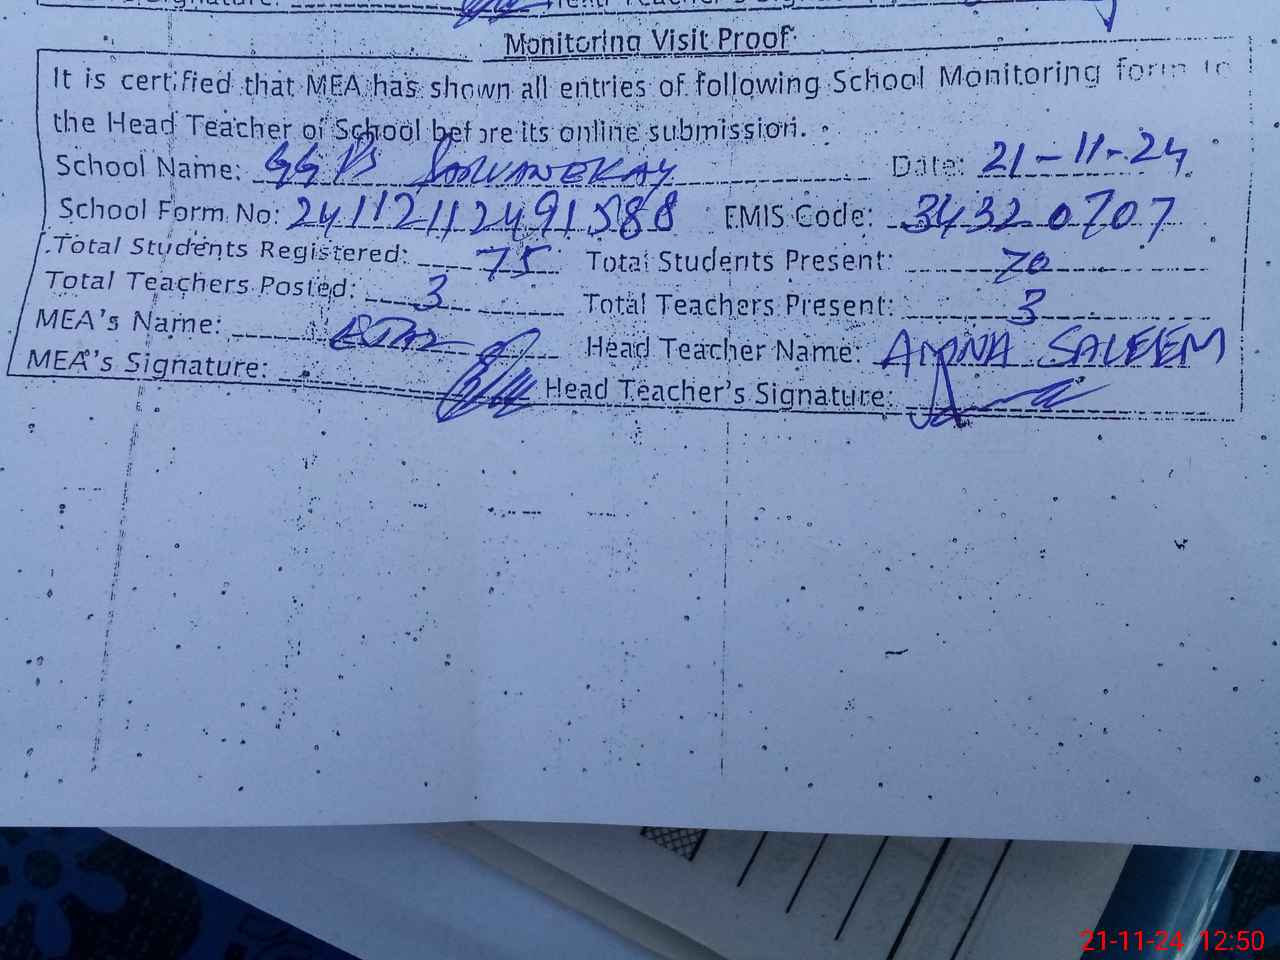 Monitoring Visit Proof
It is certified that MEA has shown all entries of following School Monitoring form to
the Head Teacher of School before its online submission.
School Name: GGPS SARWANEKAY Date: 21-11-24
School Form No: 24112112491588 EMIS Code: 34320707
Total Students Registered: 75 Total Students Present: 70
Total Teachers Posted: 3 Total Teachers Present: 3
MEA's Name: Head Teacher Name: AMNA SALEEM
MEA's Signature: Head Teacher's Signature:
21-11-24 12:50